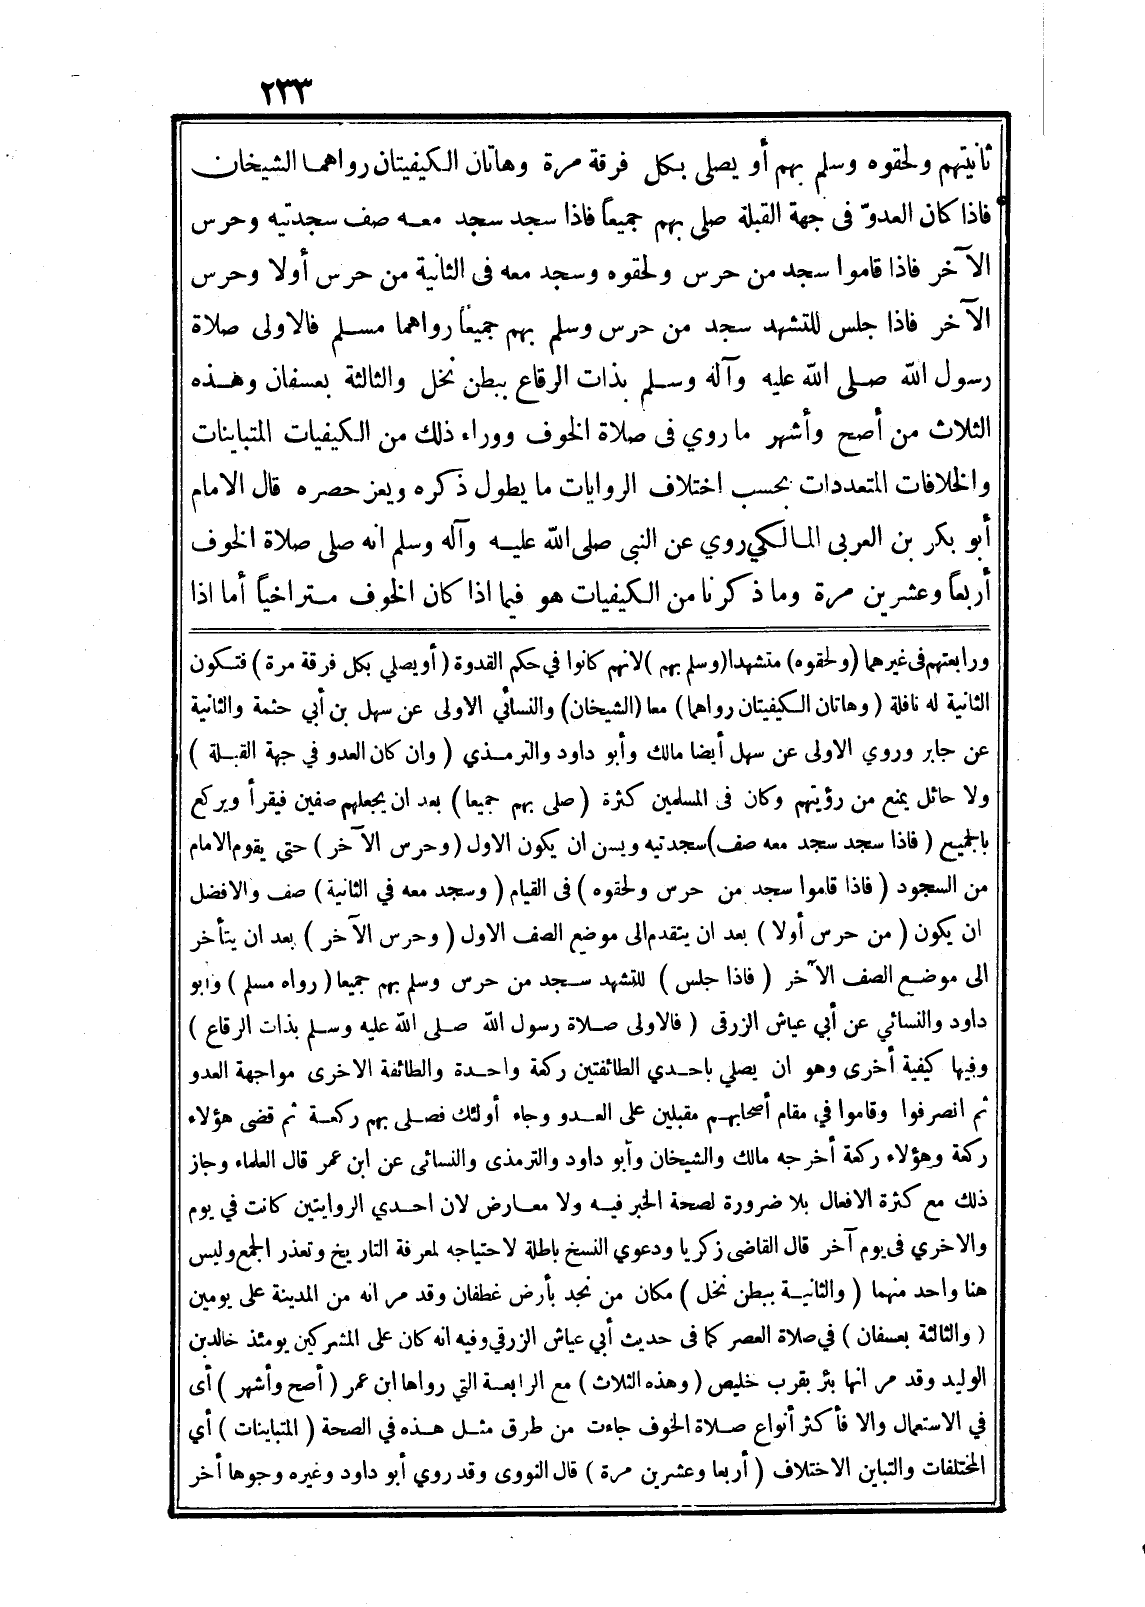 ٢٣٣
ثانيتهم ولحقوه وسلم بهم أو يصلى بكل فرقة مرة وهاتان الكيفيتان رواهما الشيخان
فاذا كان العدوّ فى جهة القبلة صلى بهم جميعاً فاذا سجد سجد معه صف سجدتيه وحرس
الآخر فاذا قاموا سجد من حرس ولحقوه وسجد معه فى الثانية من حرس أولا وحرس
الآخر فاذا جلس للتشهد سجد من حرس وسلم بهم جميعاً رواهما مسلم فالاولى صلاة
رسول الله صلى الله عليه وآله وسلم بذات الرقاع ببطن نخل والثالثة بعسفان وهذه
الثلاث من أصح وأشهر ما روي فى صلاة الخوف ووراء ذلك من الكيفيات المتباينات
والخلافات المتعددات بحسب اختلاف الروايات ما يطول ذكره ويعز حصره قال الامام
أبو بكر بن العربى المالكي روي عن النبي صلى الله عليه وآله وسلم انه صلى صلاة الخوف
أربعاً وعشرين مرة وما ذكرنا من الكيفيات هو فيما اذا كان الخوف متراخياً أما اذا
ورابعتهم فى غيرهما (ولحقوه) متشهدا (وسلم بهم) لانهم كانوا في حكم القدوة (أو يصلي بكل فرقة مرة) فتكون
الثانية له نافلة (وهاتان الكيفيتان رواهما) معا (الشيخان) والنسائي الاولى عن سهل بن أبي حثمة والثانية
عن جابر وروي الاولى عن سهل أيضا مالك وأبو داود والترمذي (وان كان العدو في جهة القبلة)
ولا حائل يمنع من رؤيتهم وكان فى المسلمين كثرة (صلى بهم جميعا) بعد ان يجعلهم صفين فيقرأ ويركع
بالجميع (فاذا سجد سجد معه صف) سجدتيه ويسن ان يكون الاول (وحرس الآخر) حتى يقوم الامام
من السجود (فاذا قاموا سجد من حرس ولحقوه) فى القيام (وسجد معه في الثانية) صف والافضل
ان يكون (من حرس أولا) بعد ان يتقدم الى موضع الصف الاول (وحرس الآخر) بعد ان يتأخر
الى موضع الصف الآخر (فاذا جلس) للتشهد سجد من حرس وسلم بهم جميعا (رواه مسلم) وأبو
داود والنسائي عن أبي عياش الزرقى (فالاولى صلاة رسول الله صلى الله عليه وسلم بذات الرقاع)
وفيها كيفية أخرى وهو ان يصلي باحدي الطائفتين ركعة واحدة والطائفة الاخرى مواجهة العدو
ثم انصرفوا وقاموا في مقام أصحابهم مقبلين على العدو وجاء أولئك فصلى بهم ركعة ثم قضى هؤلاء
ركعة وهؤلاء ركعة أخرجه مالك والشيخان وأبو داود والترمذى والنسائى عن ابن عمر قال العلماء وجاز
ذلك مع كثرة الافعال بلا ضرورة لصحة الخبر فيه ولا معارض لان احدي الروايتين كانت في يوم
والاخري فى يوم آخر قال القاضى زكريا ودعوي النسخ باطلة لاحتياجه لمعرفة التاريخ وتعذر الجمع وليس
هنا واحد منهما (والثانية ببطن نخل) مكان من نجد بأرض غطفان وقد مر انه من المدينة على يومين
(والثالثة بعسفان) في صلاة العصر كما فى حديث أبي عياش الزرقي وفيه انه كان على المشركين يومئذ خالد بن
الوليد وقد مر انها بئر بقرب خليص (وهذه الثلاث) مع الرابعة التي رواها ابن عمر (أصح وأشهر) أى
في الاستعمال والا فأكثر أنواع صلاة الخوف جاءت من طرق مثل هذه في الصحة (المتباينات) أي
المختلفات والتباين الاختلاف (أربعا وعشرين مرة) قال النووى وقد روي أبو داود وغيره وجوها أخر